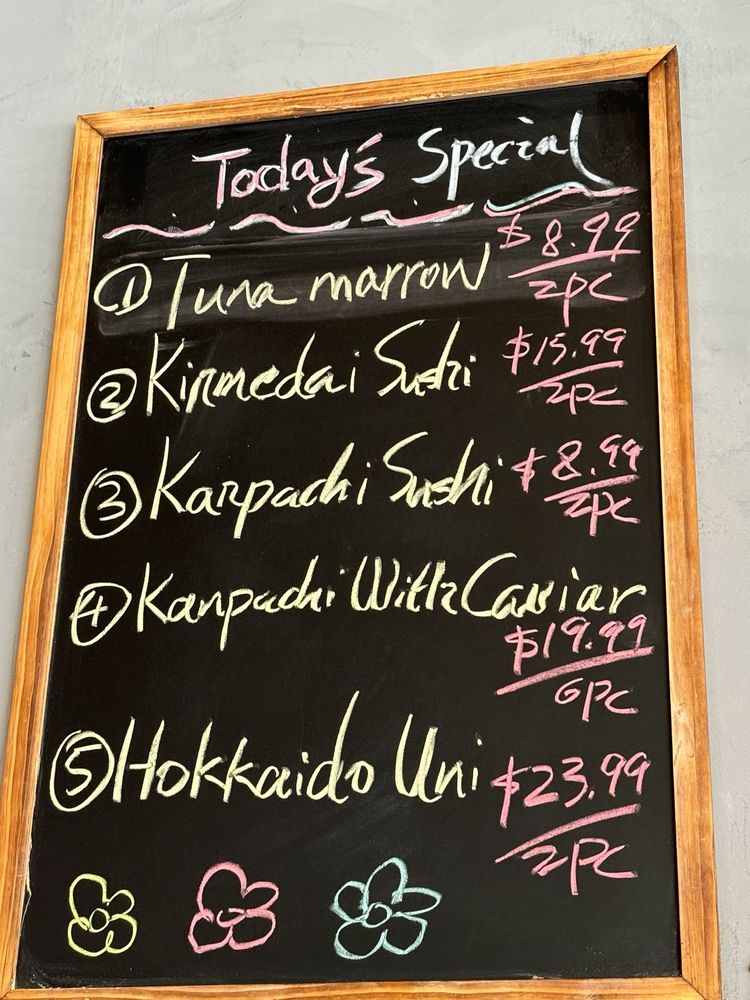 Today's Special
① Tuna marrow $8.99
2pc
② Kinmedai Sushi $15.99
2pc
③ Kanpachi Sushi $8.99
2pc
④ Kanpachi With Caviar
$19.99
6pc
⑤ Hokkaido Uni $23.99
2pc